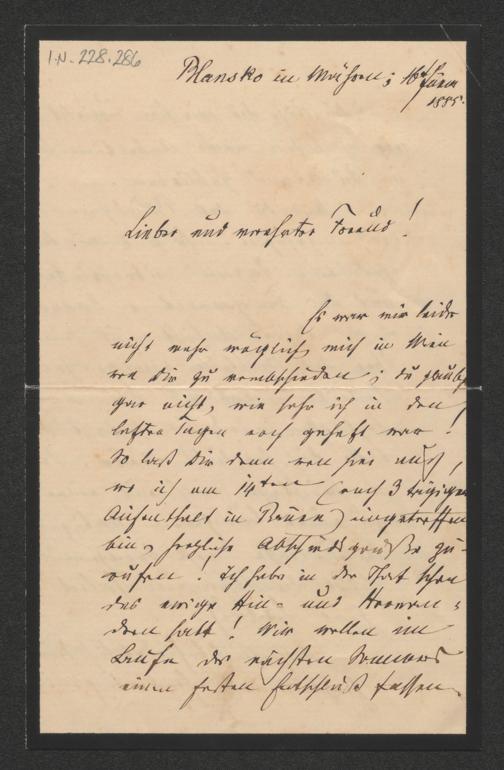 I.N. 228.286
Blansko in Mähren; 16t Juni
1885.
Lieber und verehrter Freund!
Es war mir leider
nicht mehr möglich, mich in Wien
von Dir zu verabschieden; du glaubst
gar nicht, wie sehr ich in den
letzten Tagen noch gehetzt war!
So laß Dir denn von hier aus,
wo ich am 14ten (nach 3 tägigem
Aufenthalt in Brünn) eingetroffen
bin, herzliche Abschiedsgrüße zu-
rufen! Ich habe in der That schon
das ewige Hin- und Herwan-
dern satt! Wir wollen im
Laufe des nächsten Sommers
einen festen Entschluß fassen